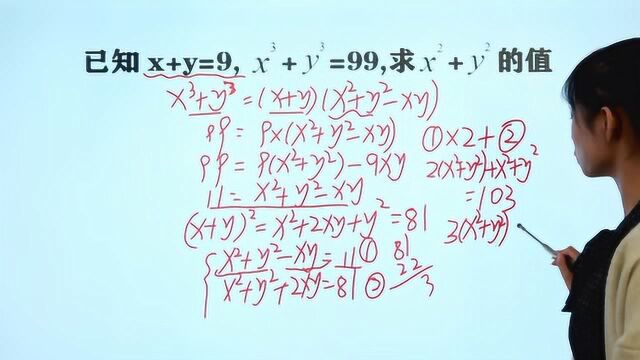 已知 x+y=9, x³+y³=99,求x²+y²的值
x³+y³=(x+y)(x²+y²-xy)
99=9×(x²+y²-xy)
99=9(x²+y²)-9xy
11=x²+y²-xy
(x+y)²=x²+2xy+y²=81
x²+y²-xy=11①
x²+y²+2xy=81②
81
22
3
①×2+②
2(x²+y²)+x²+y²
=103
3(x²+y²)